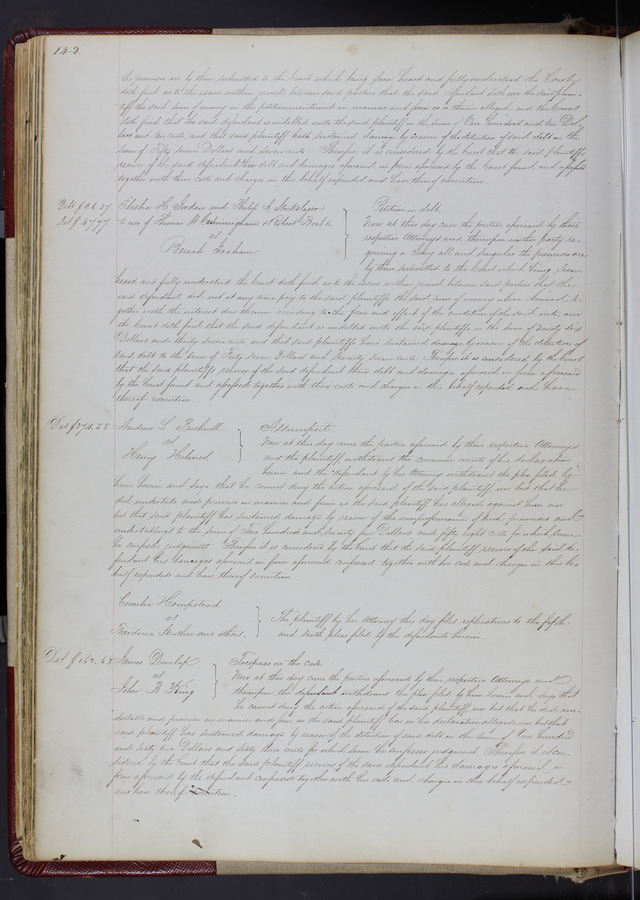 142
the premises are by them submitted to the Court which being seen heard and fully understood the Court
doth find as to the issue within joined between said parties that the said defendant doth owe the said plain-
tiff the said sum of money in the petition mentioned in manner and form as is therein alleged and the Court
doth find that the said defendant is indebted unto the said plaintiff in the sum of One Hundred and ten Dol-
lars and ten cents, and that said plaintiff hath sustained damage by reason of the detention of said debt in the
sum of Fifty seven Dollars and cents Therefore it is considered by the Court that the said plaintiff
recover of the said defendant his debt and damages aforesaid in form aforesaid by the Court found and assessed
together with their costs and charges in this behalf expended and have thereof execution.
Debt $96.37
Dat $57.77
Elisha H. Jordan and Philip
to use of Thomas W Cunningham &
vs
Graham
Petition in debt,
Now at this day came the parties aforesaid by their
respective Attorneys and thereupon neither party re-
quiring a Jury all and singular the premises are
by them submitted to the Court which being seen
heard and fully understood the Court doth find as to the issue within joined between said parties that the
said defendant did not at any time pay to the said plaintiffs the said sum of money above to-
gether with the interest due thereon according to the form and effect of the condition of the said note, and
the Court doth find that the said defendant is indebted unto the said plaintiffs in the sum of Ninety six
Dollars and thirty seven cents and that said plaintiffs have sustained damage by reason of the detention of
said debt to the sum of Fifty seven Dollars and Seventy seven cents. Therefore it is considered by the Court
that the said plaintiffs recover of the said defendant their debt and damages aforesaid in form aforesaid
by the Court found and assessed together with their costs and charges in this behalf expended and have
thereof execution.
Dat $274.58
L Bushnell
vs
Henry
Assumpsit.
Now at this day came the parties aforesaid by their respective Attorneys
and the plaintiff withdraws the common counts of his declaration
herein and the defendant by his Attorney withdraws the plea filed by
him herein and says that he cannot deny the action aforesaid of the said plaintiff, nor but that he
did undertake and promise in manner and form as the said plaintiff has alleged against him nor
but that said plaintiff has sustained damage by reason of the nonperformance of such promises and
undertakings to the sum of Two hundred and seventy four Dollars and fifty eight cents for which sum
he confesses judgment. Therefore it is considered by the Court that the said plaintiff recover of the said de-
fendant his damages aforesaid in form aforesaid confessed together with his costs and charges in this be-
half expended and have thereof execution
Cornelia Hempstead
vs
Theodocia and others
The plaintiff by her Attorney this day files replications to the fifth
and sixth pleas filed by the defendants herein.
Dat $162.63
James Dunlap
vs
John B King
Trespass on the case
Now at this day came the parties aforesaid by their respective Attorneys and
thereupon the defendant withdraws the plea filed by him herein and says that
he cannot deny the action aforesaid of the said plaintiff, nor but that he did un-
dertake and promise in manner and form as the said plaintiff has in his declaration alleged nor but that
said plaintiff has sustained damage by reason of the detention of said debt in the sum of One hundred
and sixty two Dollars and sixty three cents for which sum he confesses judgment Therefore it is con-
sidered by the Court that the said plaintiff recover of the said defendant his damages aforesaid in
form aforesaid by the defendant confessed together with his costs and charges in this behalf expended
and have thereof execution.